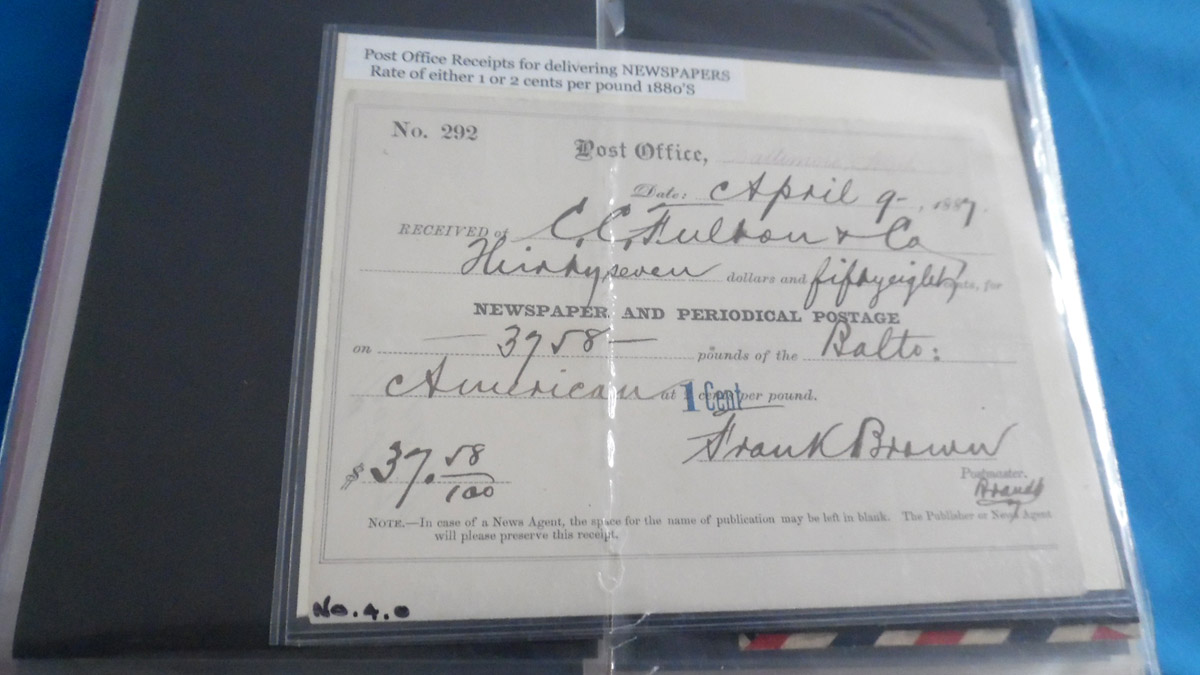 Post Office Receipts for delivering NEWSPAPERS
Rate of either 1 or 2 cents per pound 1880'S
No. 292
Post Office,
Date: April 9-, 1887.
RECEIVED of C. C. Fulton & Co
Thirtyseven dollars and fiftyeight cents, for
NEWSPAPER AND PERIODICAL POSTAGE
on — 3758 — pounds of the Balto:
American at 1 Cent per pound.
Frank Brown
$ 37. 58/100
Postmaster.
NOTE.—In case of a News Agent, the space for the name of publication may be left in blank. The Publisher or News Agent
will please preserve this receipt.
No. 4.0